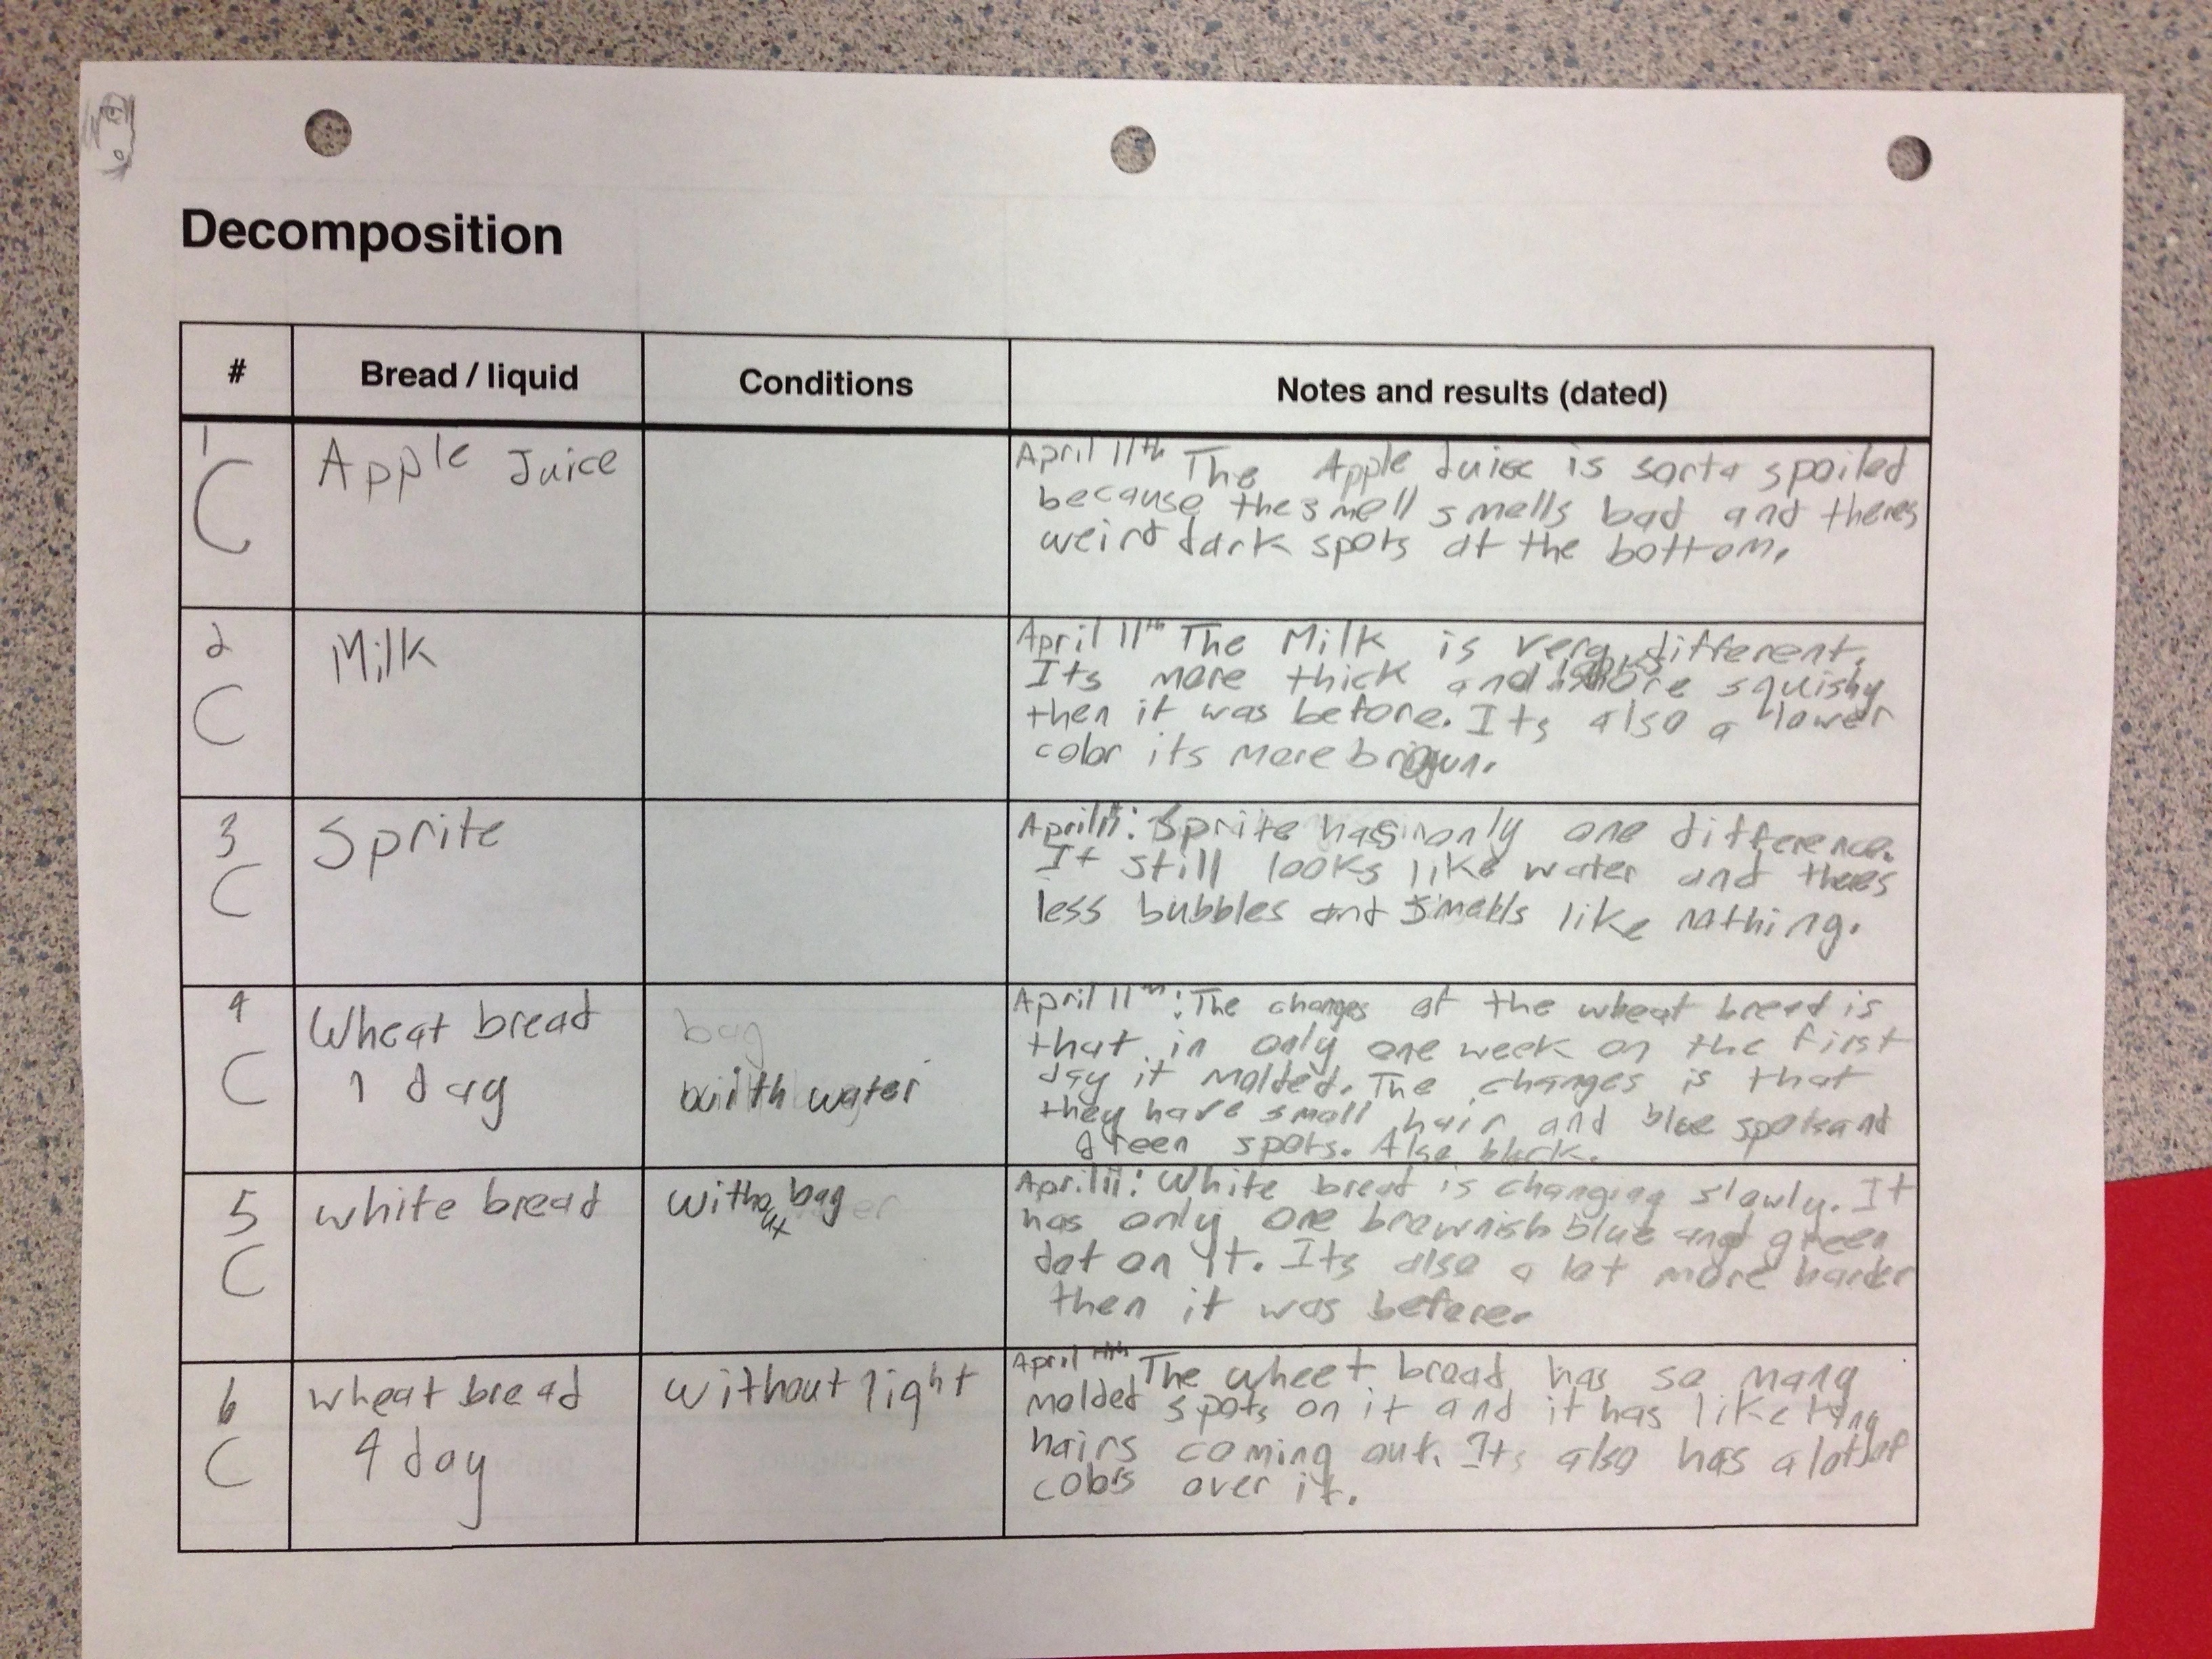 Decomposition
# Bread / liquid Conditions Notes and results (dated)
1 C
Apple Juice
April 11th The Apple Juice is sorta spoiled
because the smell smells bad and theres
weird dark spots at the bottom.
2 C
Milk
April 11th The Milk is very different.
Its more thick and more squishy
then it was before. Its also a lower
color its more brown.
3 C
Sprite
April 11: Sprite has only one difference.
It still looks like water and theres
less bubbles and smells like nothing.
4 C
Wheat bread
1 day
bag
with water
April 11th: The changes of the wheat bread is
that in only one week on the first
day it molded. The changes is that
they have small hair and blue spots and
green spots. Also black.
5 C
white bread
without bag
April 11: White bread is changing slowly. It
has only one brownish blue and green
dot on it. Its also a lot more harder
then it was before.
6 C
wheat bread
4 day
without light
April 11th The wheet bread has so many
molded spots on it and it has like tiny
hairs coming out. Its also has a lot of
cobs over it.